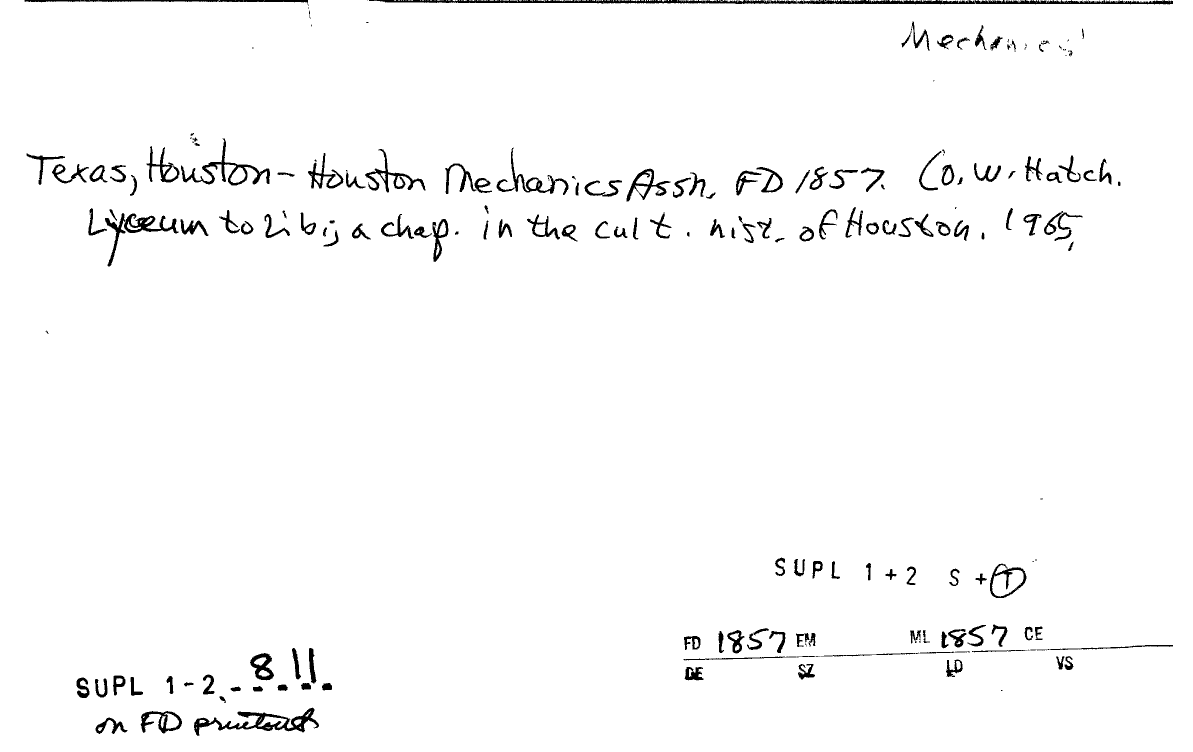 Mechanics'
Texas, Houston - Houston Mechanics Assn. FD 1857. (O. W. Hatch.
Lyceum to Lib; a chap. in the cult. hist. of Houston. 1965,
SUPL 1+2 S + T
FD 1857 EM ML 1857 CE
DE SZ LD VS
SUPL 1-2 8.11.
on FD printout